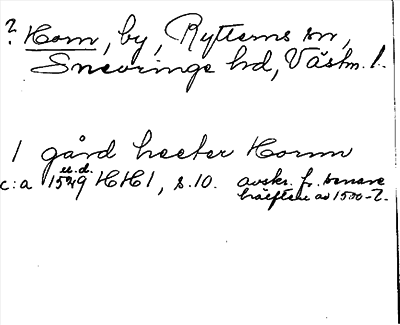 ? Horn, by, Rytterns sn,
Snevringe hd, Västm. l.
1 gård heeter Hornn
u.d.
c:a 1549 HH 1, s. 10. avskr. fr. senare
hälften av 1500-t.